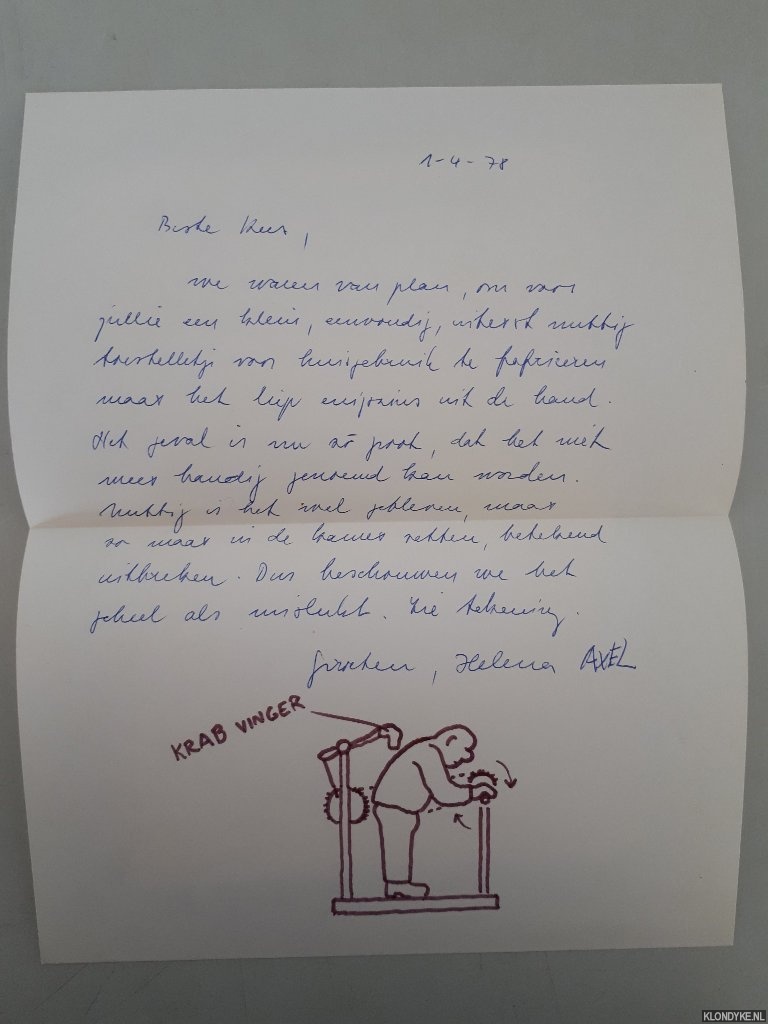 1-4-78
Beste Kees,
we waren van plan, om voor
jullie een klein, eenvoudig, uiterst nuttig
toestelletje voor huisgebruik te fabriceren
maar het liep enigszins uit de hand.
Het geval is nu zó groot, dat het niet
meer handig genoemd kan worden.
Nuttig is het wel gebleven, maar
zo maar in de kamer zetten, betekend
uitbreken. Dus beschouwen we het
geheel als mislukt. Zie tekening.
Groeten, Helena AXEL
KRAB VINGER
KLONDYKE.NL